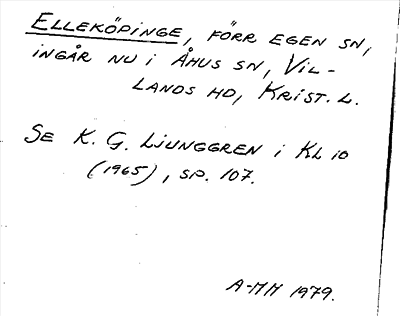 ELLEKÖPINGE, FÖRR EGEN SN,
INGÅR NU I ÅHUS SN, VIL-
LANDS HD, KRIST. L.
SE K. G. LJUNGGREN i KL 10
(1965), SP. 107.
A-MH 1979.